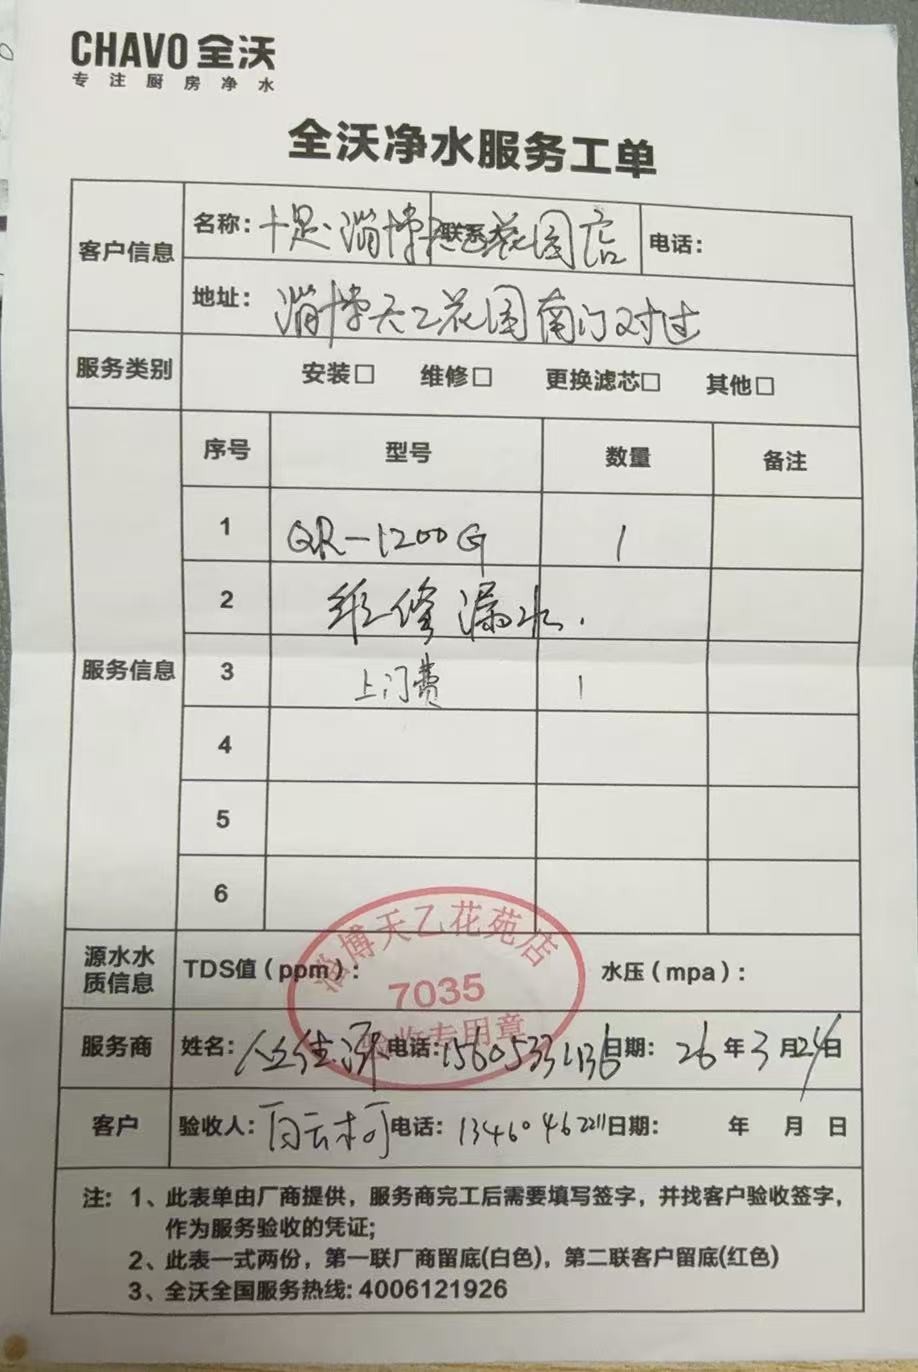 CHAVO 全沃
专注厨房净水
全沃净水服务工单
客户信息
名称: 十足·淄博天乙花园店 联系 电话:
地址: 淄博天乙花园南门对过
服务类别 安装□ 维修□ 更换滤芯□ 其他□
服务信息
序号 型号 数量 备注
1 QR-1200G 1
2 维修漏水.
3 上门费 1
4
5
6
淄博天乙花苑店
7035
验收专用章
源水水质信息 TDS值(ppm): 水压(mpa):
服务商 姓名: 电话: 日期: 26年3月24日
客户 验收人: 电话: 13460462211 日期: 年 月 日
注: 1、此表单由厂商提供，服务商完工后需要填写签字，并找客户验收签字，
作为服务验收的凭证;
2、此表一式两份，第一联厂商留底(白色)，第二联客户留底(红色)
3、全沃全国服务热线: 4006121926